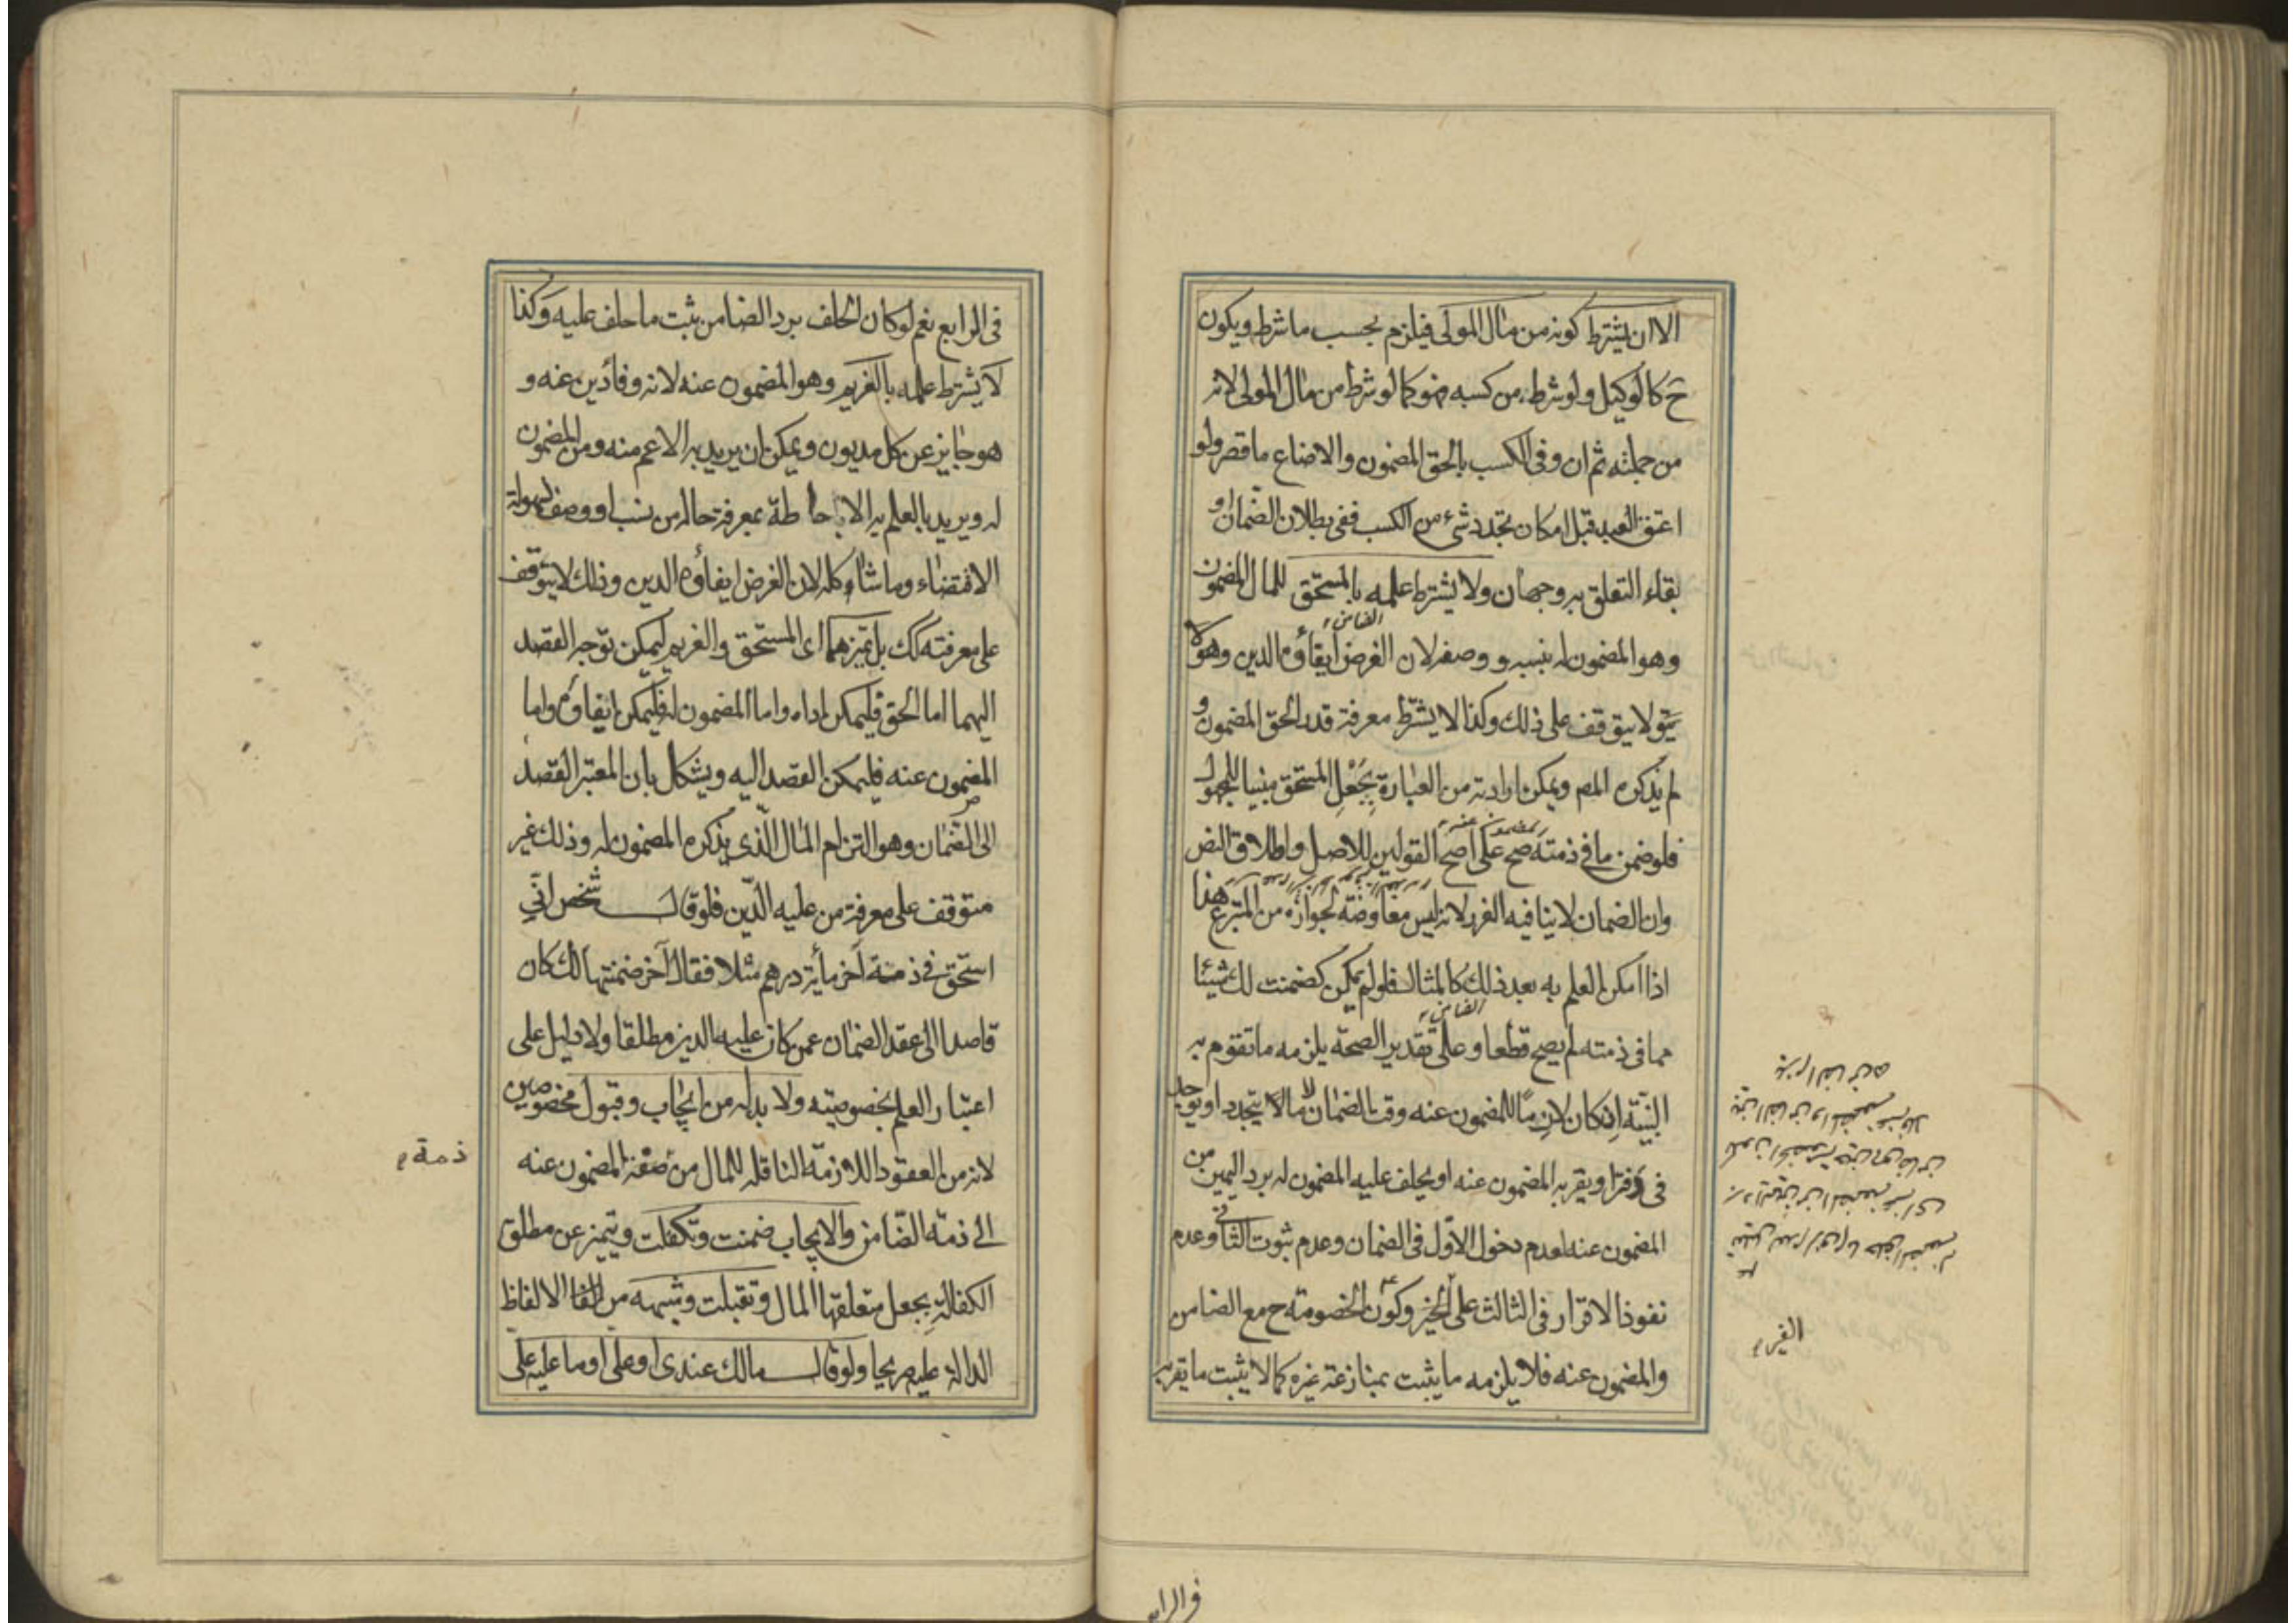 الا ان يشترط كونه من مال المولى فيلزم بحسب ما شرط ويكون
ح كالوكيل ولو شرطه من كسبه فهو كما لو شرط من مال المولى لانه
من جملته ثم ان وفى الكسب بالحق المضمون والا ضاع ما قصر ولو
اعتق العبد قبل امكان تجدد شئ من الكسب ففى بطلان الضمان و
بقاء التعلق به وجهان ولا يشترط علمه بالمستحق للمال المضمون
الضامن
وهو المضمون له بنسبه ووصفه لان الغرض ايفاؤه الدين وهو لا
يتوقف على ذلك وكذا لا يشترط معرفة قدر الحق المضمون و
لم يذكره المص ويمكن ارادته من العبارة بجعل المستحق مبنيا للمجهول
فلو ضمن ما فى ذمته صح على اصح القولين للاصل واطلاق النص
وان الضمان لا ينافيه الغرر لانه ليس معاوضة لجوازه من المتبرع هذا
اذا امكن العلم به بعد ذلك كالمثال فلو لم يمكن كضمنت لك شيئا
الضامن
مما فى ذمته لم يصح قطعا وعلى تقدير الصحة يلزمه ما تقوم به
البينة انه كان لازما للمضمون عنه وقت الضمان لا ما يتجدد او يوجد
فى دفتر او يقر به المضمون عنه او يحلف عليه المضمون له برد اليمين من
المضمون عنه لعدم دخول الاول فى الضمان وعدم ثبوت الثانى وعدم
نفوذ الاقرار فى الثالث على الغير وكون الخصومة ح مع الضامن
والمضمون عنه فلا يلزمه ما يثبت بمنازعة غيره كما لا يثبت ما يقر به
الغير
فى الرابع
فى الرابع نعم لو كان الحلف برد الضامن ثبت ما حلف عليه وكذا
لا يشترط علمه بالغريم وهو المضمون عنه لانه وفاء دين عنه و
هو جايز عن كل مديون ويمكن ان يريد به الاعم منه ومن المضمون
له ويريد بالعلم به الاحاطة بمعرفة حاله من نسب او وصف لسهولة
الاقتضاء وما شاكله لان الغرض ايفاؤه الدين وذلك لا يتوقف
على معرفته كك بل تميزهما اى المستحق والغريم ليمكن توجه القصد
اليهما اما الحق فليمكن اداه واما المضمون له فليمكن ايفاؤه واما
المضمون عنه فليمكن القصد اليه ويشكل بان المعتبر القصد
الى الضمان وهو التزام المال الذى يذكره المضمون له وذلك غير
متوقف على معرفة من عليه الدين فلو قال شخص انى
استحق فى ذمة آخر مأية درهم مثلا فقال آخر ضمنتها لك كان
قاصدا الى عقد الضمان عمن كان عليه الدين مطلقا ولا دليل على
اعتبار العلم بخصوصيته ولا بد له من ايجاب وقبول مخصوصين
لانه من العقود اللازمة الناقلة للمال من المضمون عنه
ذمة
الى ذمة الضامن والايجاب ضمنت وتكفلت ويتميز عن مطلق
الكفالة بجعل متعلقها المال وتقبلت وشبهه من الالفاظ
الدالة عليه صريحا ولو قال مالك عندى او على او ما عليه على